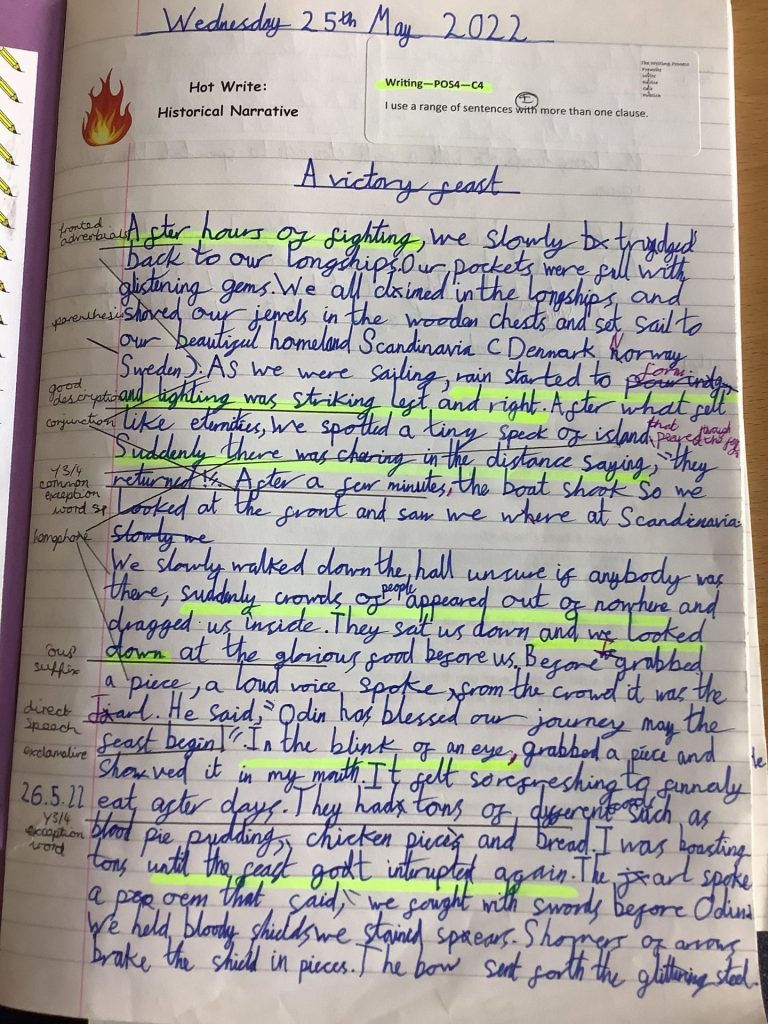 Wednesday 25th May 2022
Hot Write:
Historical Narrative
Writing—POS4—C4
I use a range of sentences with more than one clause.
The Writing Process
A victory feast
fronted adverbials
After hours of fighting, we slowly trudged
back to our longships. Our pockets were full with
glistening gems. We all claimed in the longships and
parenthesis
shoved our jewels in the wooden chests and set sail to
our beautiful homeland Scandinavia (Denmark Norway
Sweden). As we were sailing, rain started to form
good description
and lighting was striking left and right. After what felt
conjunction
like eternities, we spotted a tiny speck of island that peared through the fog
Suddenly there was chering in the distance saying, "they
Y3/4 common exception word sp
returned!". After a few minutes, the boat shook so we
looked at the front and saw we where at Scandenavia.
homophone
slowly we
We slowly walked down the hall unsure if anybody was
there, suddenly crowds of people appeared out of nowhere and
dragged us inside. They sat us down and we looked
'ous' suffix
down at the glorious food before us. Before I grabbed
a piece, a loud voice spoke from the crowd it was the
direct speech
Jarl. He said, "Odin has blessed our journey may the
exclamative
feast begin!". In the blink of an eye, grabbed a piece and
showved it in my mouth. It felt so refreshing to finnaly
26.5.22
eat after days. They had tons of different food such as
Y3/4 exception word
blood pie pudding, chicken pieces and bread. I was boasting
tons until the feast got interupted again. The jarl spoke
a poem that said, "we fought with swords before Odin
We held bloody shields we stained spears. Showers of arrows
brake the shield in pieces. The bow sent forth the glittering steel.